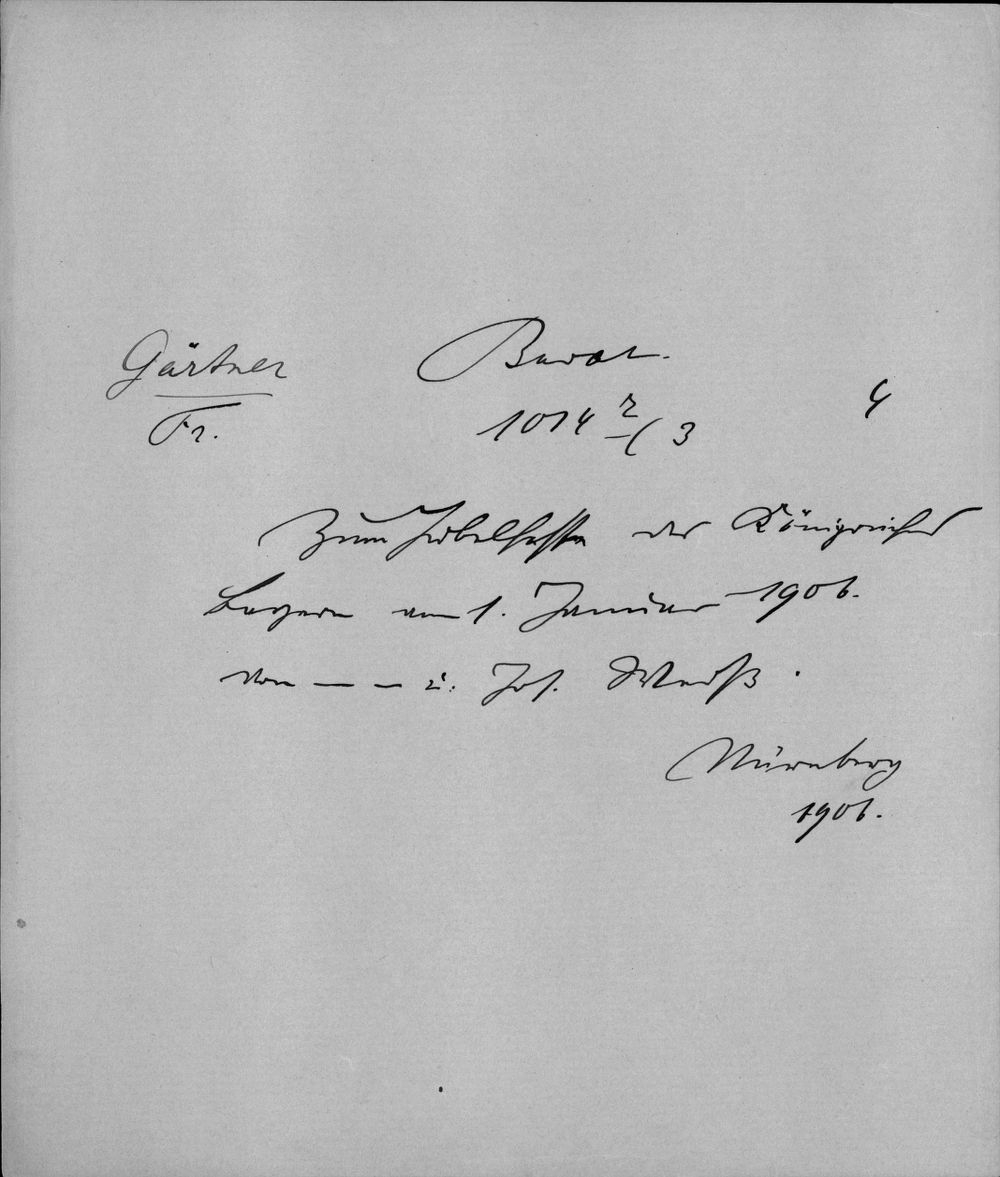 Gärtner
Fr.
Bavar.
1014 r/3
4
Zum Jubelfeste des Königreiches
Bayern am 1. Januar 1906.
von — — u. Jos. Weiß.
Nürnberg
1906.